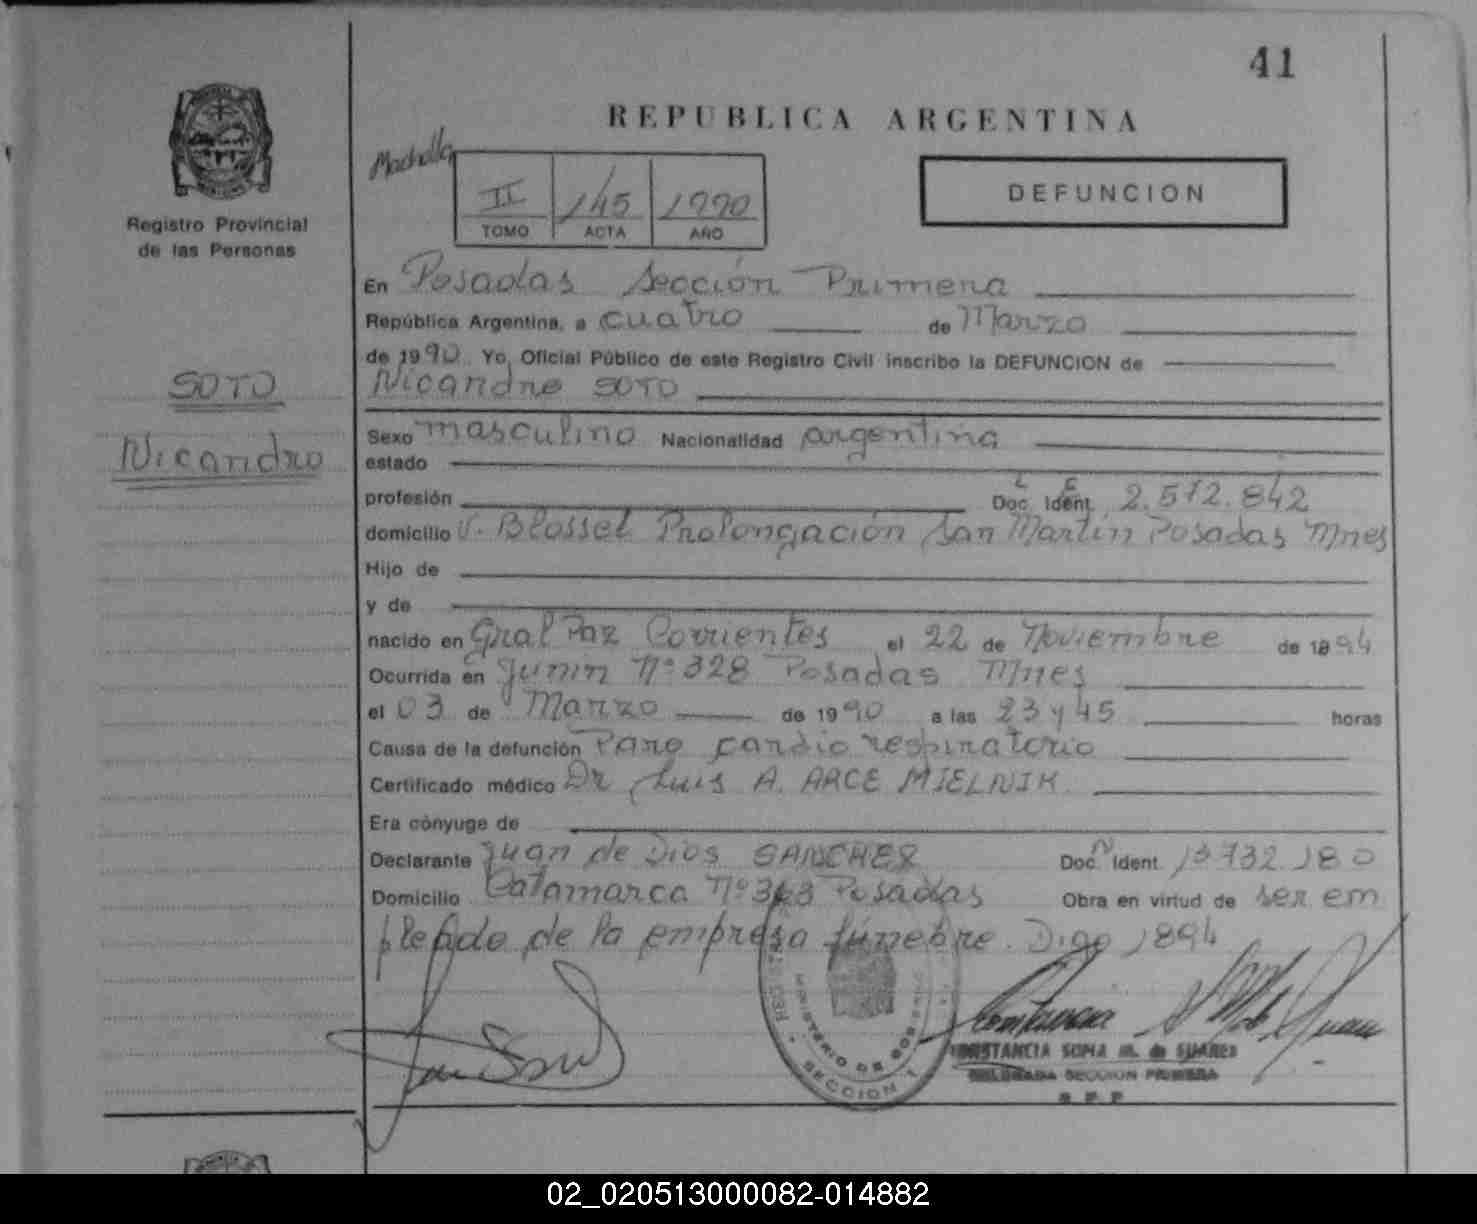 41
REPUBLICA ARGENTINA
Registro Provincial
de las Personas
II 145 1990
TOMO ACTA AÑO
DEFUNCION
SOTO
Nicandro
En Posadas Sección Primera
República Argentina, a cuatro de Marzo
de 1990 Yo, Oficial Público de este Registro Civil inscribo la DEFUNCION de
Nicandro SOTO
Sexo masculino Nacionalidad argentina
estado
profesión L E Doc. Ident. 2.572.842
domicilio V. Blosset Prolongación San Martín Posadas Mnes
Hijo de
y de
nacido en Gral Paz Corrientes el 22 de Noviembre de 1894
Ocurrida en Junin Nº 328 Posadas Mnes
el 03 de Marzo de 1990 a las 23 y 45 horas
Causa de la defunción Paro cardio respiratorio
Certificado médico Dr Luis A. ARCE MIELNIK
Era cónyuge de
Declarante Juan de Dios SANCHEZ Doc. Ident. 13732180
Domicilio Catamarca Nº 363 Posadas Obra en virtud de ser em
pleado de la empresa fúnebre. Digo 1894
MINISTERIO DE
SECCION 1
CONSTANCIA SOFIA M. de SUAREZ
DELEGADA SECCION PRIMERA
R. P. P.
02_020513000082-014882